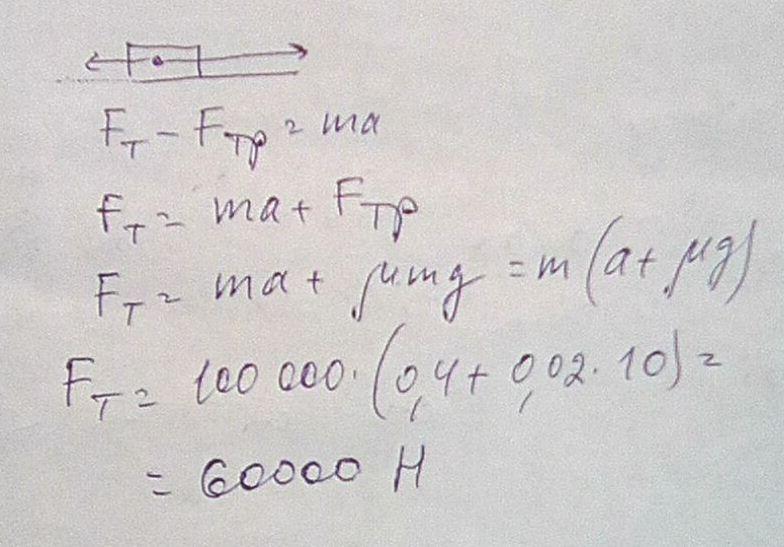 Fт - Fтр = ma
Fт = ma + Fтр
Fт = ma + μmg = m(a + μg)
Fт = 100 000 · (0,4 + 0,02 · 10) =
= 60000 Н